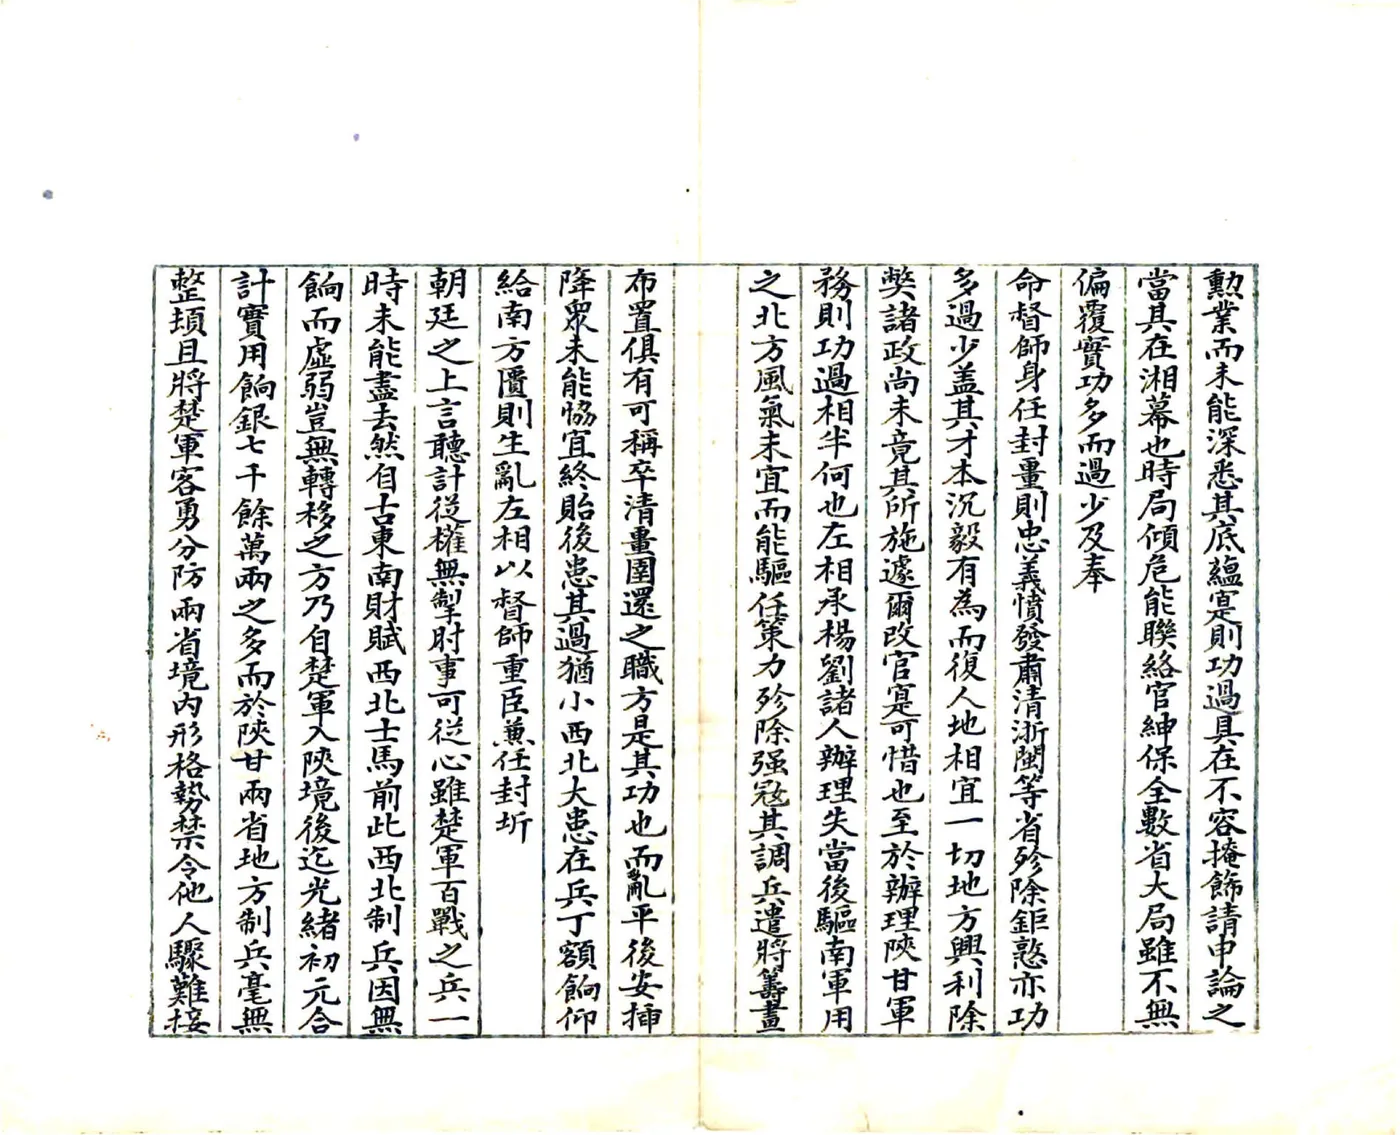 勲業而未能深悉其底蘊寔則功過具在不容掩飾請申論之
當其在湘幕也時局傾危能聨絡官紳保全數省大局雖不無
偏覆實功多而過少及奉
命督師身任封畺則忠義憤發肅清浙閩等省殄除鉅憝亦功
多過少盖其才本沉毅有為而復人地相宜一切地方興利除
獘諸政尚未竟其所施遽爾改官寔可惜也至於辦理陝甘軍
務則功過相半何也左相承楊劉諸人辦理失當後驅南軍用
之北方風氣未宜而能驅任策力殄除强寇其調兵遣將籌畫
布置俱有可稱卒清畺圉還之職方是其功也而亂平後安揷
降衆未能恊宜終貽後患其過猶小西北大患在兵丁額餉仰
給南方匱則生亂左相以督師重臣兼任封圻
朝廷之上言聽計従權無掣肘事可従心雖楚軍百戰之兵一
時未能盡去然自古東南財賦西北士馬前此西北制兵因無
餉而虛弱豈無轉移之方乃自楚軍入陝境後迄光緒初元合
計實用餉銀七千餘萬兩之多而於陝甘兩省地方制兵毫無
整頓且將楚軍客勇分防兩省境内形格勢禁令他人驟難接